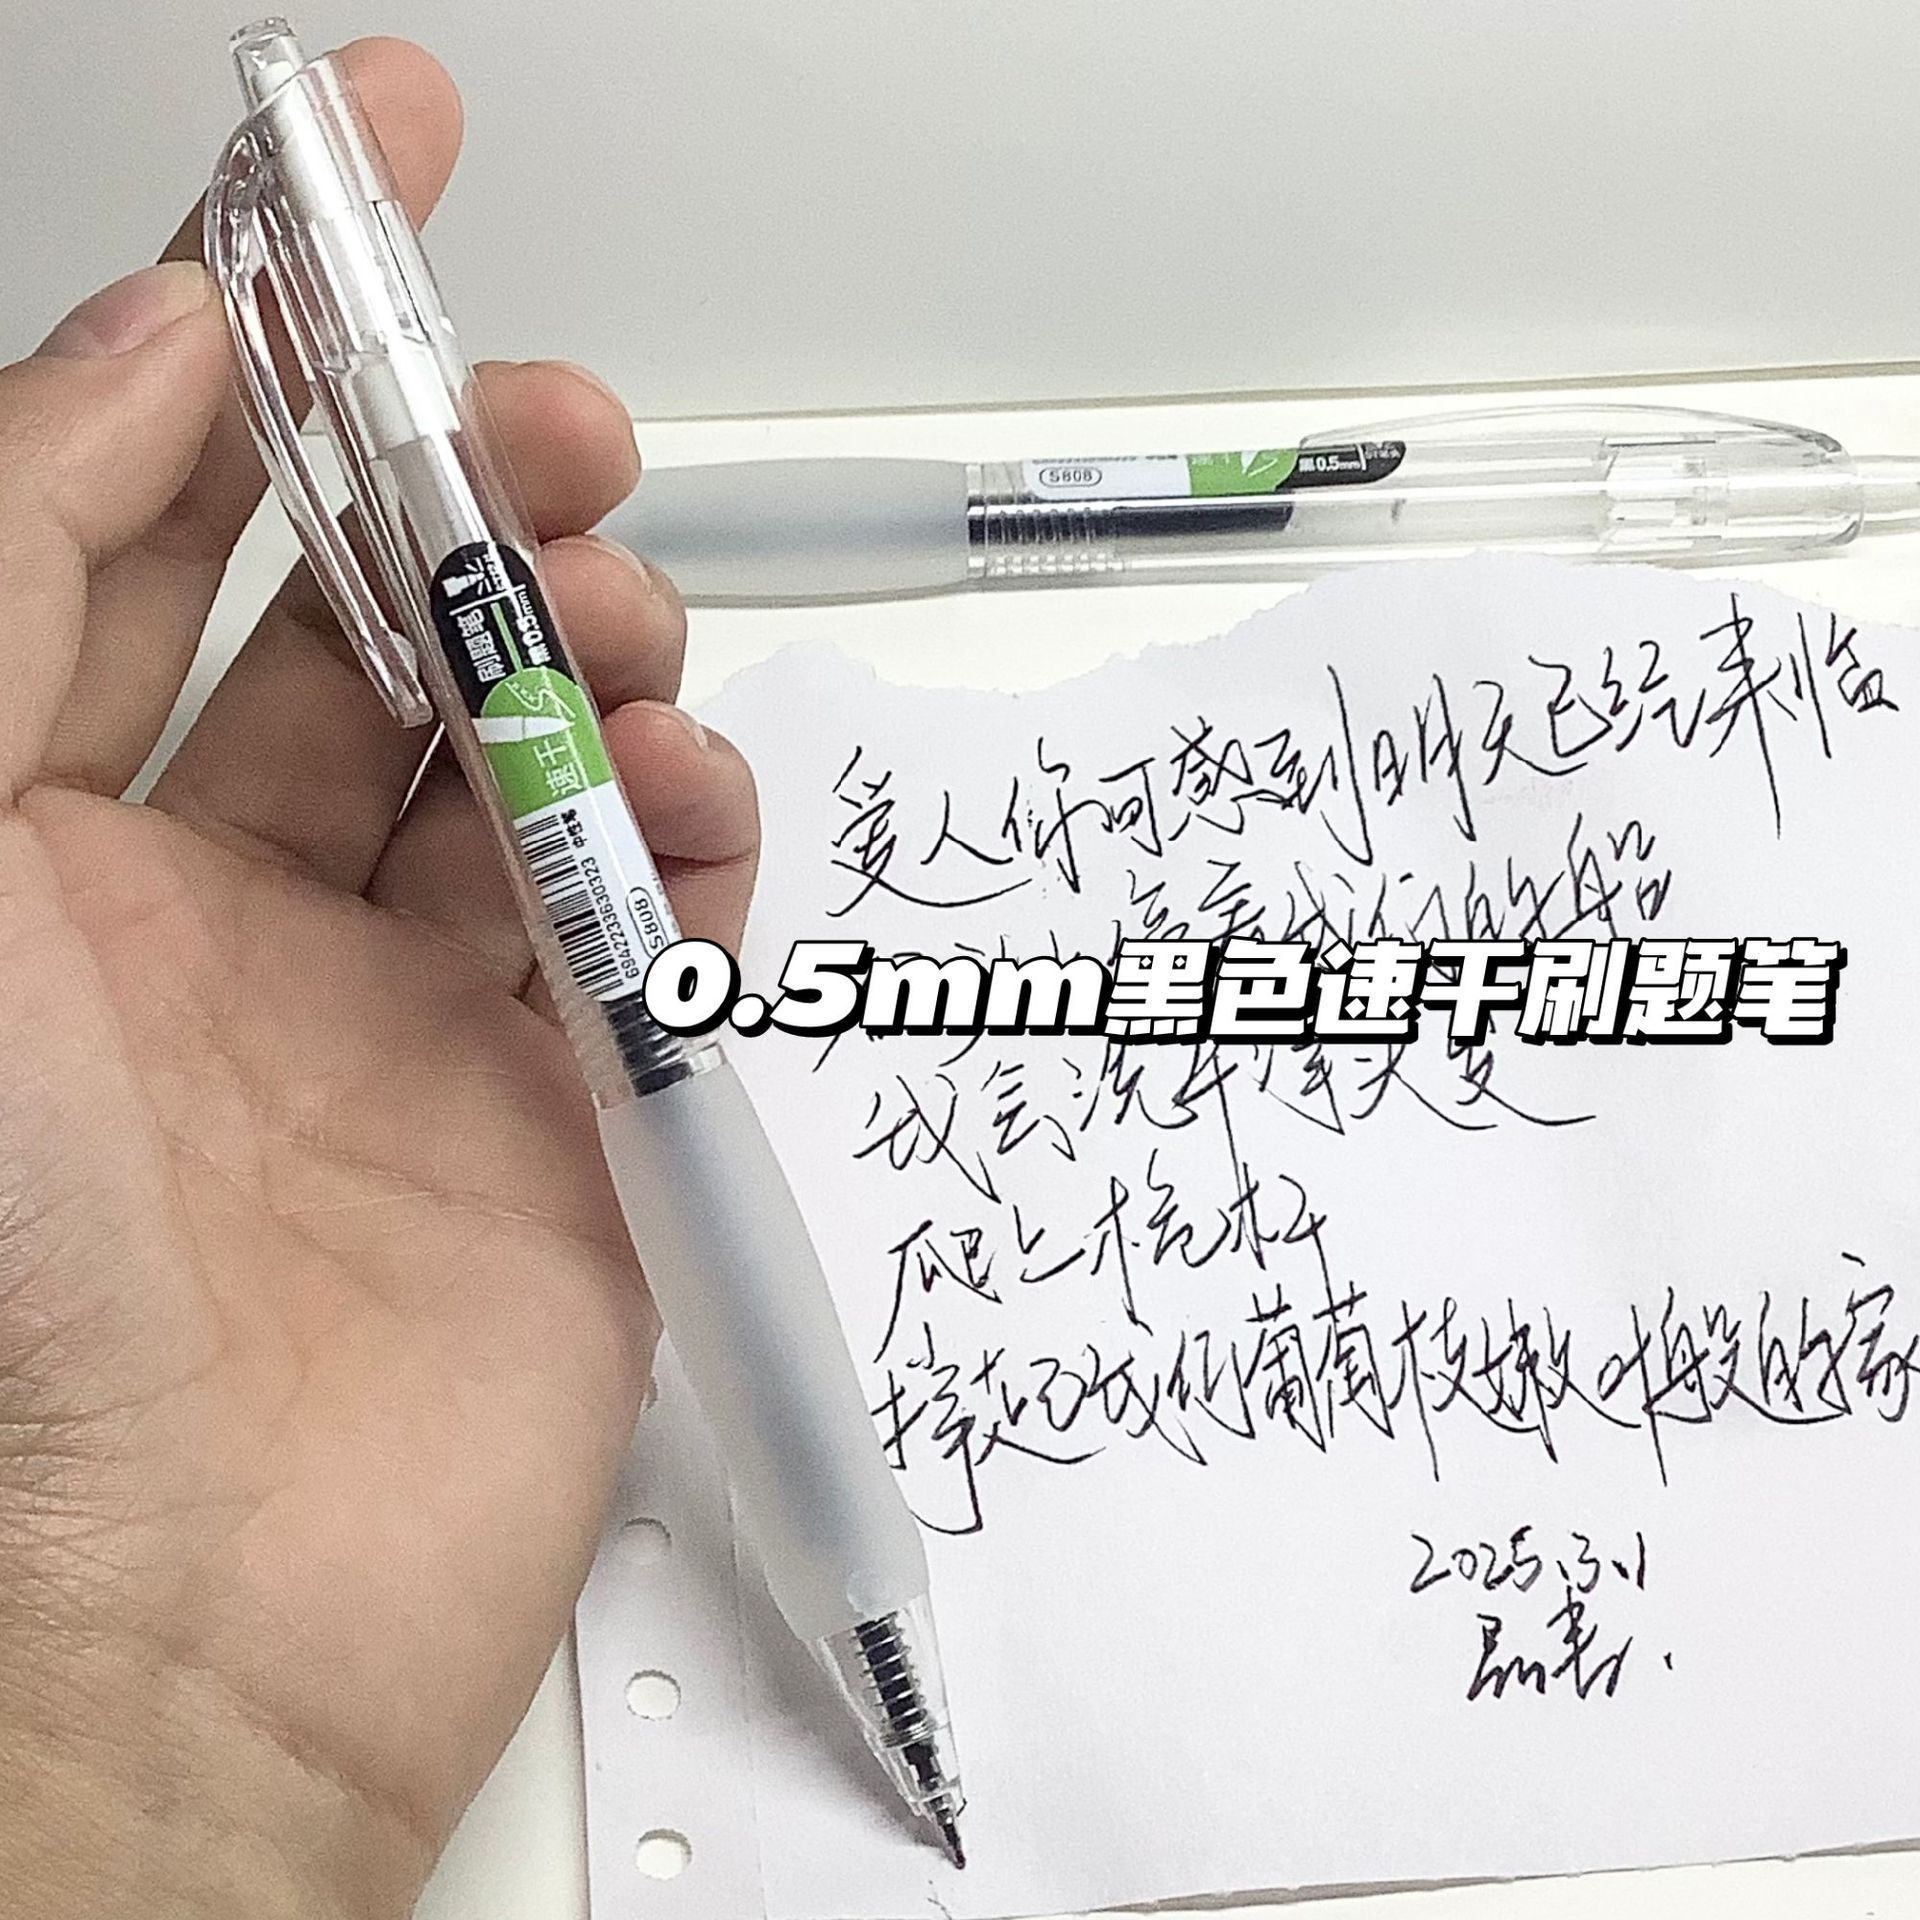 S808
黑0.5mm
ST笔头
刷题笔
黑0.5mm
速干
中性笔
6942233630323
S808
爱人你可感到明天已经来临
我们的船
0.5mm黑色速干刷题笔
我会洗干净头发
爬上桅杆
撑起我们葡萄枝嫩叶般的家
2025.3.1